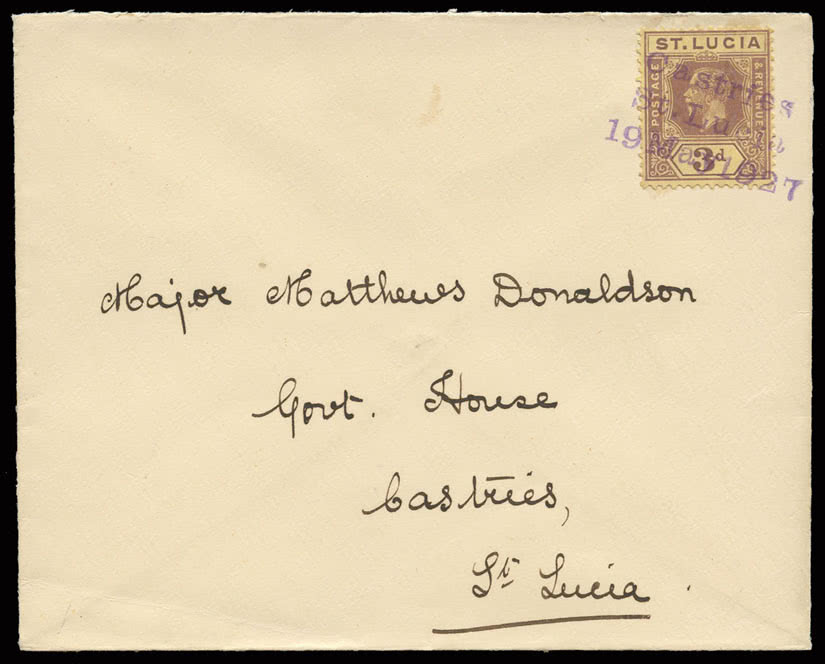 ST. LUCIA
POSTAGE & REVENUE
3d
Castries
St. Lucia
19 Mar 1927
Major Matthews Donaldson
Govt. House
Castries,
St Lucia.